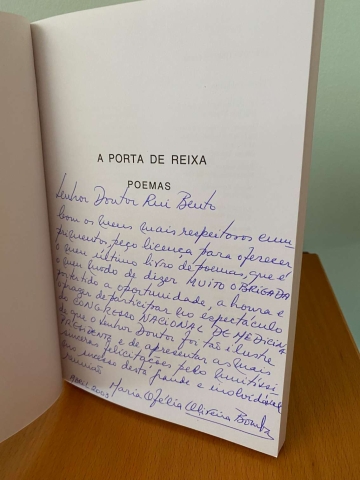 A PORTA DE REIXA
POEMAS
Senhor Doutor Rui Bento
Com os meus mais respeitosos cum-
primentos, peço licença para oferecer
o meu último livro de poemas, que é
o meu modo de dizer MUITO OBRIGADA
por tido a oportunidade, a honra e
o prazer de participar no espectáculo
do CONGRESSO NACIONAL DE MEDICINA
de que o Senhor Doutor foi tão ilustre
PRESIDENTE e de apresentar as mais
sinceras felicitações pelo
sucesso desta grande e inolvidável
reunião
Abril 2003 Maria Ofélia Oliveira Bomba